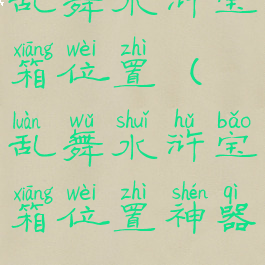 乱舞水浒宝
xiāng wèi zhì
箱位置（
luàn wǔ shuǐ hǔ bǎo
乱舞水浒宝
xiāng wèi zhì shén qì
箱位置神器